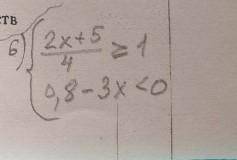 ств
б) { (2x+5)/4 ≥ 1
0,8-3x<0